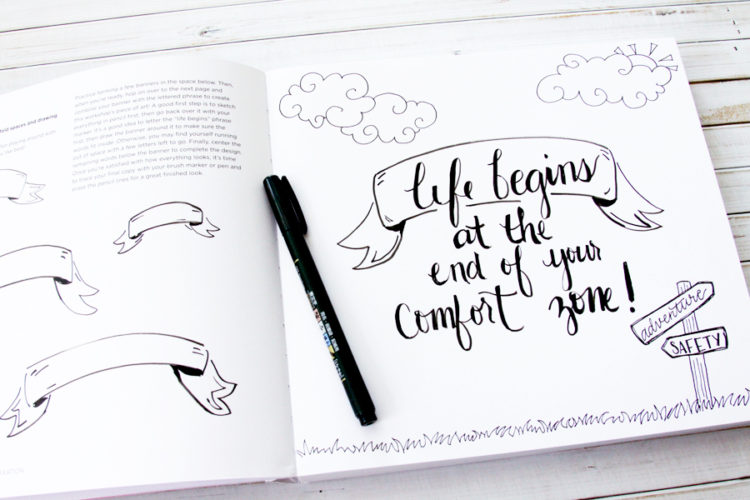 Practice forming a few banners in the space below. Then,
when you're ready, hop on over to the next page and
combine your banner with the lettered phrase to create
this workshop's piece of art! A good first step is to sketch
everything in pencil first, then go back over it with your
marker. It's a good idea to letter the "life begins" phrase
first, then draw the banner around it to make sure the
words fit inside. Otherwise, you may find yourself running
out of space with a few letters left to go. Finally, center the
remaining words below the banner to complete the design.
Once you're satisfied with how everything looks, it's time
to trace your final copy with your brush marker or pen and
erase the pencil lines for a great finished look.
fold spaces and drawing
life begins
at the
end of your
comfort zone!
adventure
SAFETY